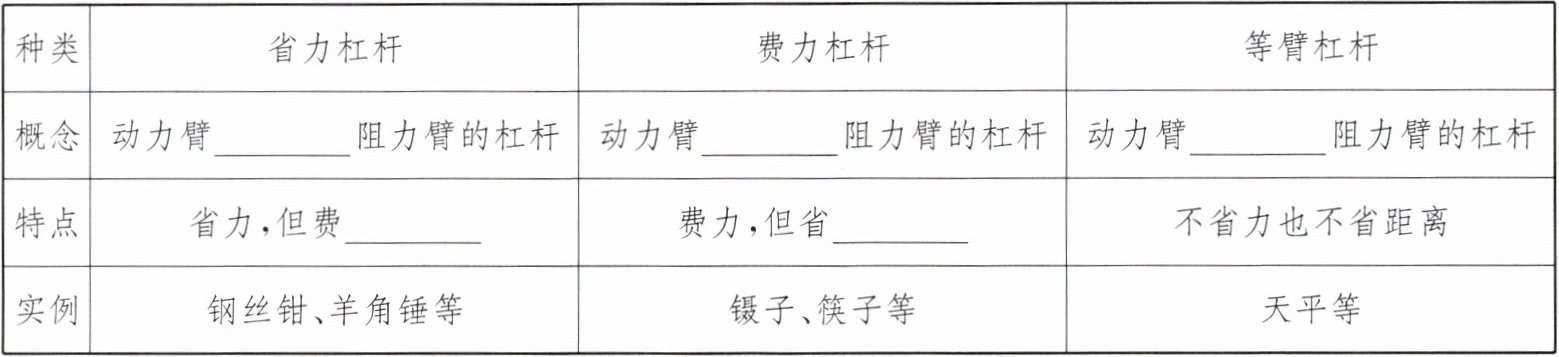 种类 省力杠杆 费力杠杆 等臂杠杆
概念 动力臂________阻力臂的杠杆 动力臂________阻力臂的杠杆 动力臂________阻力臂的杠杆
特点 省力,但费________ 费力,但省________ 不省力也不省距离
实例 钢丝钳、羊角锤等 镊子、筷子等 天平等